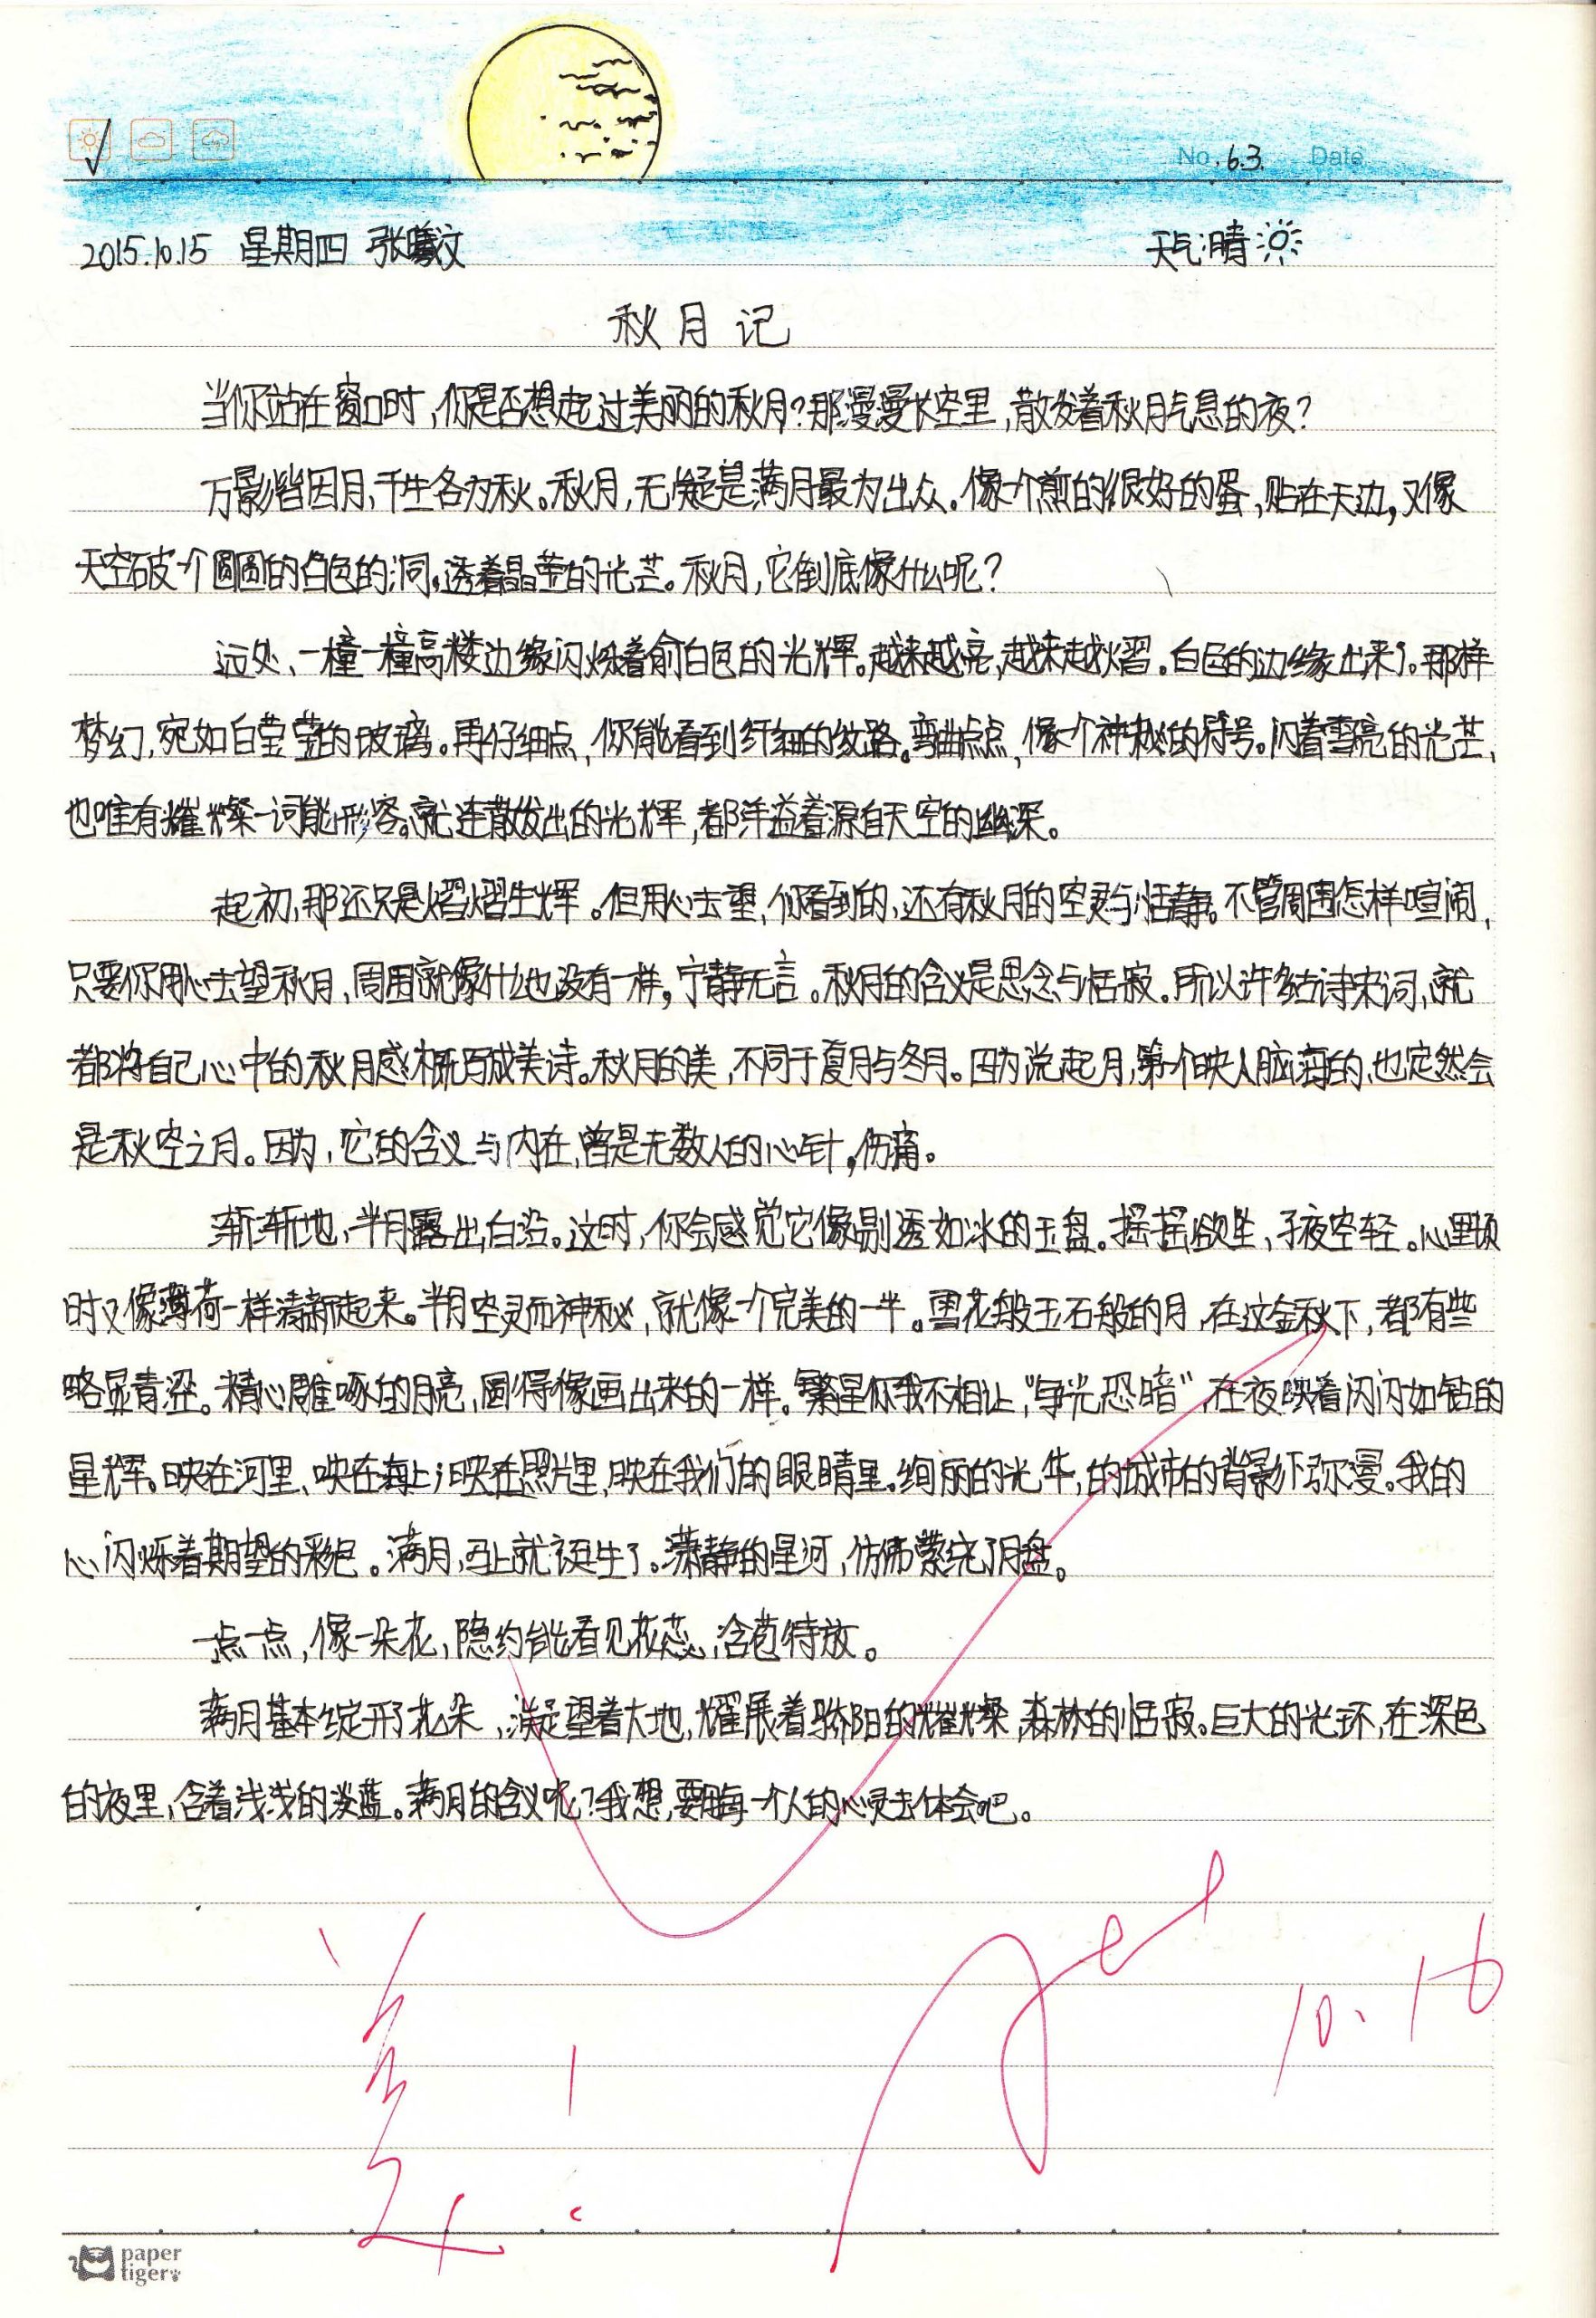 No. 63. Date
2015.10.15 星期四 张曦文 天气:晴
秋月记
当你站在窗口时,你是否想起过美丽的秋月?那漫漫长空里,散发着秋月气息的夜?
万影皆因月,千生各为秋。秋月,无疑是满月最为出众。像个煎的很好的蛋,贴在天边,又像
天空破个圆圆的白色的洞,透着晶莹的光芒。秋月,它到底像什么呢?
远处、一橦一橦高楼边缘闪烁着俞白色的光辉。越来越亮,越来越熠。白色的边缘出来了。那样
梦幻,宛如白莹莹的玻璃。再仔细点,你能看到纤细的纹路。弯曲点点,像个神秘的符号。闪着雪亮的光芒,
也唯有璀璨一词能形容。就连散发出的光辉,都洋溢着源自天空的幽深。
起初,那还只是熠熠生辉。但用心去望,你看到的,还有秋月的空灵与恬静。不管周围怎样喧闹,
只要你用心去望秋月,周围就像什么也没有一样,宁静无言。秋月的含义是思念与恬寂。所以许多古诗宋词,就
都将自己心中的秋月感概写成美诗。秋月的美,不同于夏月与冬月。因为说起月,第一个映人脑海的,也定然会
是秋空之月。因为,它的含义与内在,曾是无数人的心针,伤痛。
渐渐地,半月露出白沿。这时,你会感觉它像剔透如冰的玉盘。摇摇欲坠,子夜空轻。心里顿
时又像薄荷一样清新起来。半月空灵而神秘,就像一个完美的一半。雪花般玉石般的月,在这金秋下,都有些
略显青涩。精心雕啄的月亮,圆得像画出来的一样。繁星你我不相让,“争光恐暗”,在夜映着闪闪如钻的
星辉。映在河里、映在海上,映在照片里,映在我们的眼睛里。绚丽的光华,的城市的背影下弥漫。我的
心闪烁着期望的彩色。满月,马上就诞生了。潇静的星河,仿佛萦绕了月盘。
一点一点,像一朵花,隐约能看见花蕊,含苞待放。
满月基本绽开了花朵,凝望着大地,耀展着骄阳的璀璨,森林的恬寂。巨大的光环,在深色
的夜里,含着浅浅的淡蓝。满月的含义呢?我想,要用每一个人的心灵去体会吧。
美!
10.16
paper
tiger